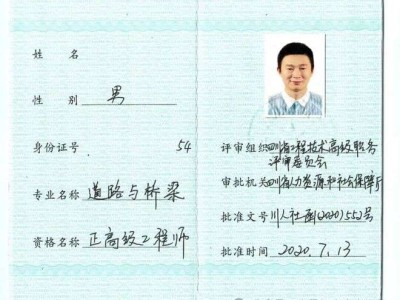 姓 名
性 别 男
身份证号 54
专业名称 道路与桥梁
资格名称 正高级工程师
评审组织 四川省工程技术高级职务
评审委员会
审批机关 四川省人力资源和社会保障厅
批准文号 川人社函(2020)552号
批准时间 2020.7.13